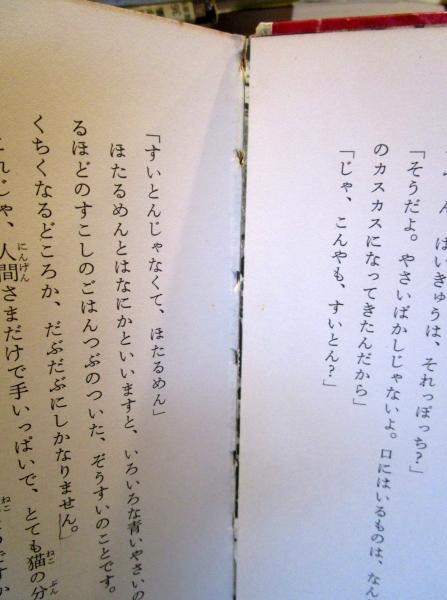 はいきゅうは、それっぽっち?」
「そうだよ。やさいばかしじゃないよ。口にはいるものは、なん
のカスカスになってきたんだから」
「じゃ、こんやも、すいとん?」
「すいとんじゃなくて、ほたるめん」
ほたるめんとはなにかといいますと、いろいろな青いやさいの
るほどのすこしのごはんつぶのついた、ぞうすいのことです。
くちくなるどころか、だぶだぶにしかなりません。
れじゃ、人間さまだけで手いっぱいで、とても猫の分
にんげん
ねこ
ぶん